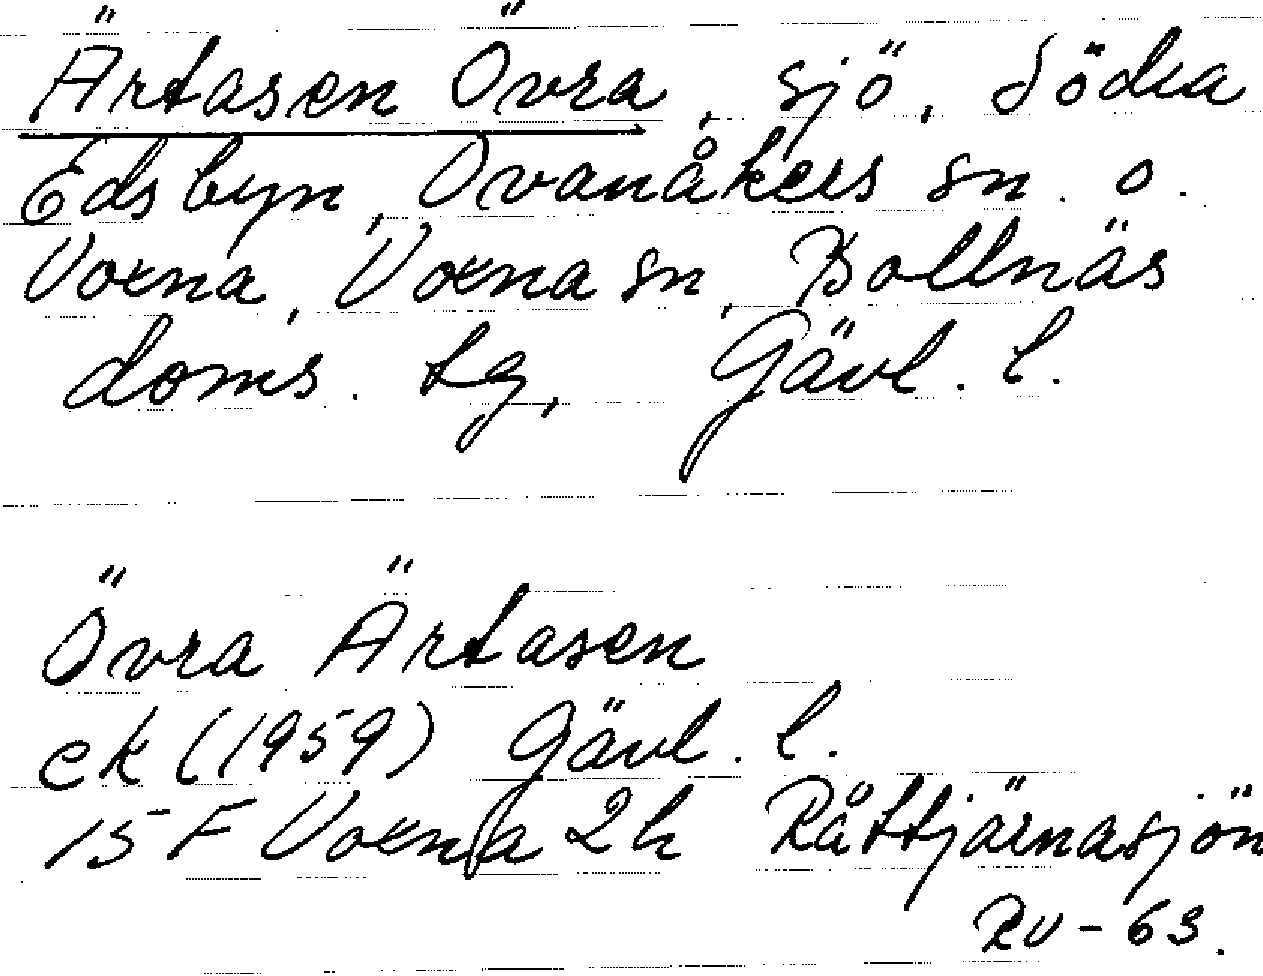 Ärtasen Övra, sjö, Södra
Edsbyn, Ovanåkers sn. o.
Voxna, Voxna sn, Bollnäs
doms. tg, Gävl. l.
Övra Ärtasen
ek (1959) Gävl. l.
15 F Voxna 2h Råttjärnasjön
RV-63.